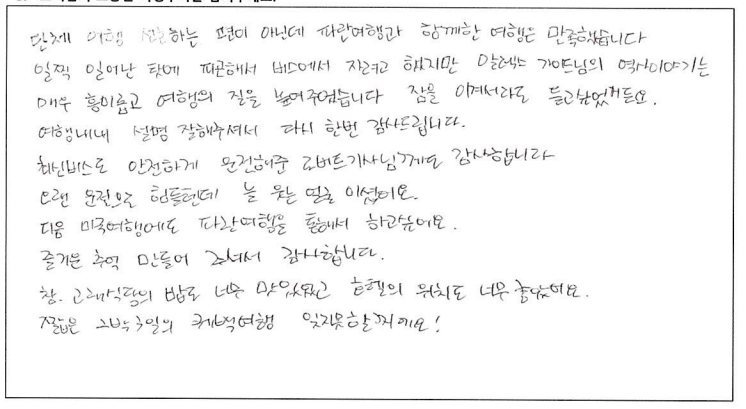 단체 여행 선호하는 편이 아닌데 파란여행과 함께한 여행은 만족했습니다
일찍 일어난 탓에 피곤해서 버스에서 자려고 했지만 알렉스 가이드님의 역사이야기는
매우 흥미롭고 여행의 질을 높여주었습니다 잠을 이겨서라도 듣고싶었거든요.
여행내내 설명 잘해주셔서 다시 한번 감사드립니다.
최신버스로 안전하게 운전해준 로버트기사님께도 감사합니다
오랜 운전으로 힘들텐데 늘 웃는 얼굴 이셨어요.
다음 미국여행에도 파란여행을 통해서 하고싶어요.
즐거운 추억 만들어 주셔서 감사합니다.
참. 고래식당의 밥도 너무 맛있었고 호텔의 위치도 너무 좋았어요.
짧은 2박3일의 퀘벡여행 잊지못할꺼에요!